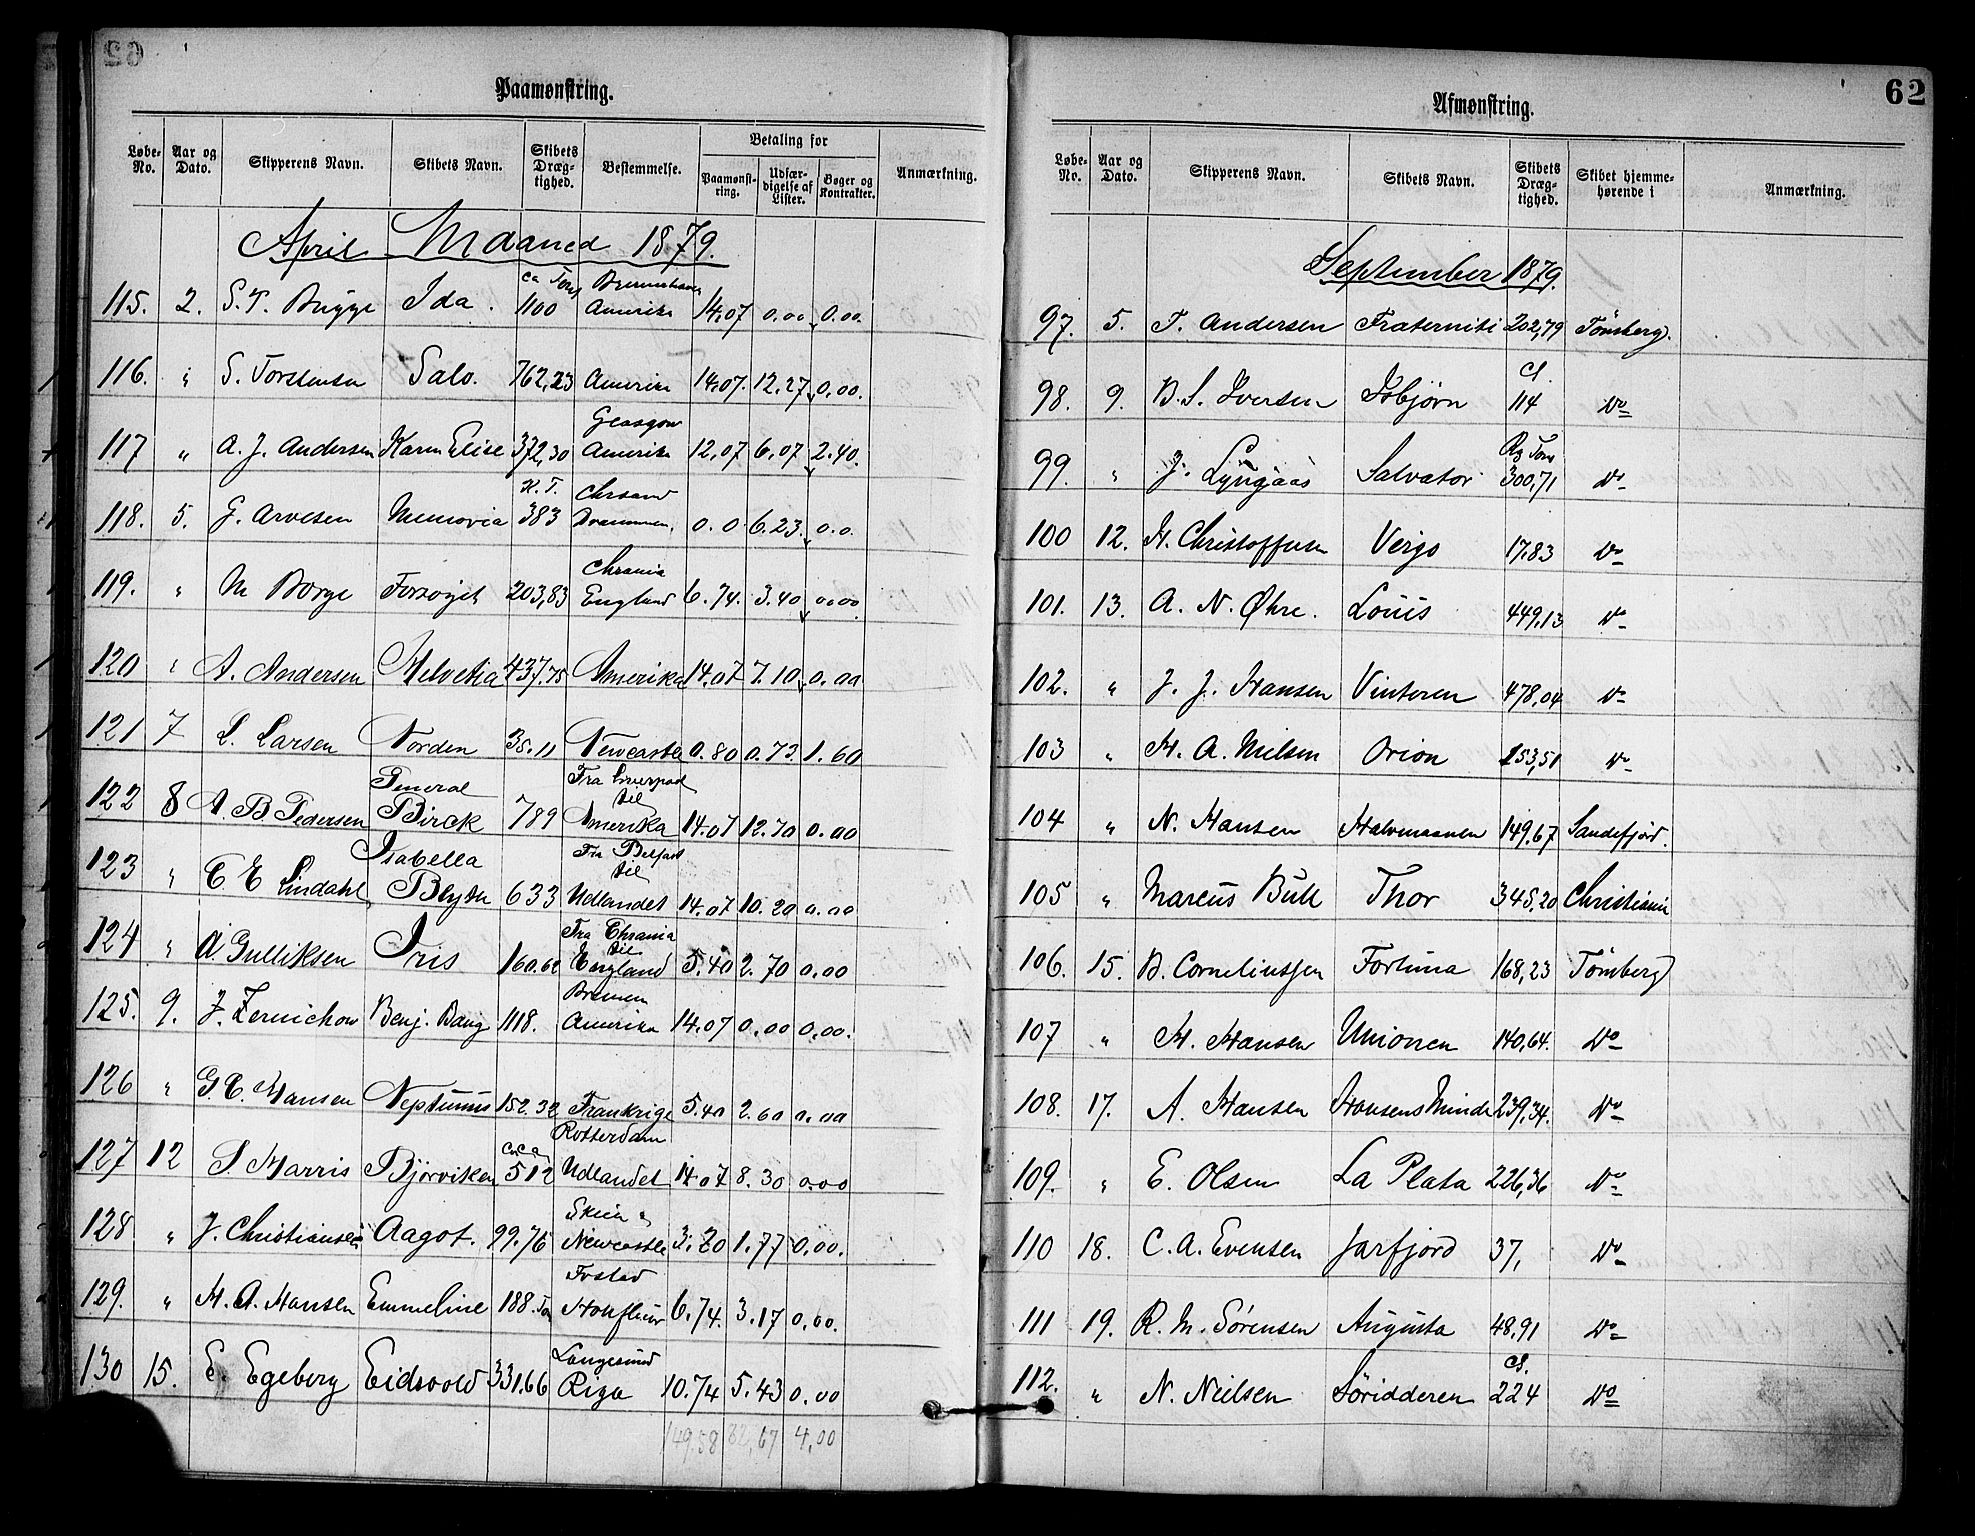 Paamønstring.
Løbe-No. Aar og Dato. Skipperens Navn. Skibets Navn. Skibets Dræg-tighed. Bestemmelse. Betaling for Paamønst-ring. Udfær-digelse af Lister. Bøger og Kontrakter. Anmærkning.
April Maaned 1879.
ca Tons Bremerhaven
115. 2. S. T. Bugge Ida. 1100 Amerika 14,07 0.00 0.00.
116. " S. Torstensen Salo. 762,23 Amerika 14,07. 12.27 0,00.
Glasgow
117 " A. J. Andersen Karen Elise 372,30 Amerika 12,07 6,07 2.40.
K. T. Chrsand
118. 5. G. Arvesen 383 Drammen. 0.0 6.23. 0.0.
Chrania
119. " M Borge Forsøget 203,83 England 6.74. 3.40 0.00
120 " A. Andersen Helvetia 437.75 Amerika 14.07 7.10 0.00
121 7 L. Larsen Norden 35.11 Newcastle 0.80 0.73. 1.60
General Fra Liverpool til
122 8 A B Pedersen Birck 789 Amerika 14.07 12.70 0.00
Isabella Fra Belfast til
123 " C E Lindahl Blyth 633 Udlandet 14.07 10.20 0.00
Fra Chrania til
124 " A. Gulliksen Iris 160.62 England 5.40 2.70 0.00
Bremen
125. 9. J. Zernichow Benj. Bang 1118. Amerika 14.07 0,00 0,00.
126 " G. C. Hansen Neptunus 152.32 Frankrige 5.40 2.60 0.00
Rotterdam
127 12 S. Harris Bjørviken 512 Udlandet 14.07 8.30 0.00
Skien "
128 " J. Christiansen Aagot. 99.76 Newcastle 3.20 1.77 0,00.
129. " H. A. Hansen Emmeline 188. Honfleur 6.74. 3.17 0,00.
Langesund
130 15. E. Egeberg Eidsvold 331,66 Riga 10.74 5.43 0.00
149.58 82,67 4,00
62
Afmønstring.
Løbe-No. Aar og Dato. Skipperens Navn. Skibets Navn. Skibets Dræg-tighed. Skibet hjemme-hørende i Anmærkning.
September 1879.
97. 5. T. Andersen Fraterniti 202,79 Tönsberg.
Cl.
98. 9. B. S. Iversen Isbjørn 114 Do
Rg Tons
99. " J. Lyngaas Salvator 300,71 Do
100 12. H. Christoffersen Vergo 17.83 Do
101. 13. A. N. Øhre. Louis 449,13 Do
102. " J. J. Hansen Vinteren 478,04 Do
103 " H. A. Nielsen Orion 153,51 Do
104 " N. Hansen Halvmaanen 149.67 Sandefjord.
105 " Marcus Bull Thor 345,20 Christiania
106. 15. B. Corneliussen Fortuna 168,23 Tönsberg
107 " H. Hansen Unionen 140,64. Do
108. 17. A. Hansen Hansens Minde 239,34. Do
109. " E. Olsen La Plata 226,36 Do
110 18. C. A. Evensen Jarfjord 37, Do
111 19. R. M. Sörensen Augusta 48,91 Do
Cl.
112. " N. Nielsen Söridderen 224 Do